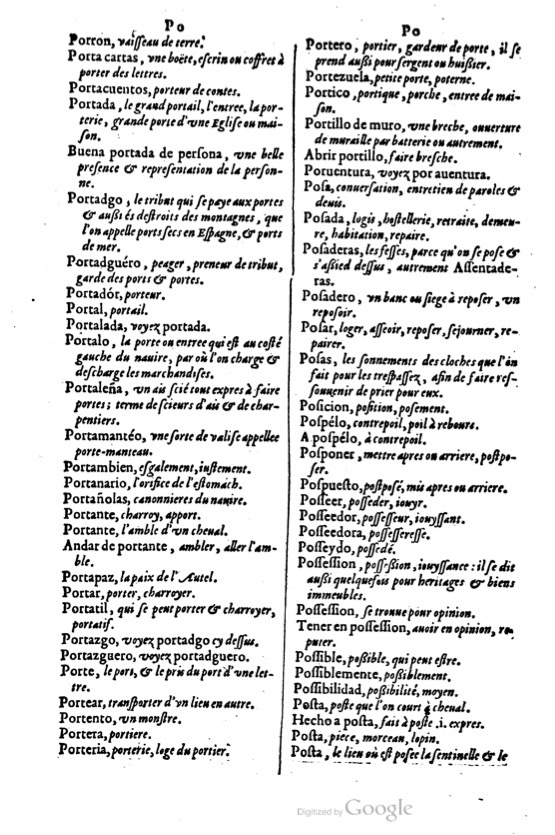 Po
Porron, vaisseau de terre.
Porta cartas, vne boëte, escrin ou coffret à
porter des lettres.
Portacuentos, porteur de contes.
Portada, le grand portail, l'entree, la por-
terie, grande porte d'vne Eglise ou mai-
son.
Buena portada de persona, vne belle
presence & representation de la person-
ne.
Portadgo, le tribut qui se paye aux portes
& aussi és destroits des montagnes, que
l'on appelle ports secs en Espagne, & ports
de mer.
Portadguéro, peager, preneur de tribut,
garde des ports & portes.
Portadór, porteur.
Portal, portail.
Portalada, voyez portada.
Portalo, la porte ou entree qui est au costé
gauche du nauire, par où l'on charge &
descharge les marchandises.
Portaleña, vn ais scié tout expres à faire
portes; terme de scieurs d'ais & de char-
pentiers.
Portamantéo, vne sorte de valise appellee
porte-manteau.
Portambien, esgalement, iustement.
Portanario, l'orifice de l'estomach.
Portañolas, canonnieres du nauire.
Portante, charroy, apport.
Portante, l'amble d'vn cheual.
Andar de portante, ambler, aller l'am-
ble.
Portapaz, la paix de l'Autel.
Portar, porter, charroyer.
Portatil, qui se peut porter & charroyer,
portatif.
Portazgo, voyez portadgo cy dessus.
Portazguero, voyez portadguero.
Porte, le port, & le pris du port d'vne let-
tre.
Portear, transporter d'vn lieu en autre.
Portento, vn monstre.
Portera, portiere.
Porteria, porterie, loge du portier.
Po
Portero, portier, gardeur de porte, il se
prend aussi pour sergent ou huissier.
Portezuela, petite porte, poterne.
Portico, portique, porche, entree de mai-
son.
Portillo de muro, vne breche, ouuerture
de muraille par batterie ou autrement.
Abrir portillo, faire bresche.
Poruentura, voyez por auentura.
Posa, conuersation, entretien de paroles &
deuis.
Posada, logis, hostellerie, retraite, demeu-
re, habitation, repaire.
Posaderas, les fesses, parce qu'on se pose &
s'assied dessus, autrement Assentade-
ras.
Posadero, vn banc ou siege à reposer, vn
reposoir.
Posar, loger, asseoir, reposer, sejourner, re-
pairer.
Posas, les sonnements des cloches que l'on
fait pour les trespassez, afin de faire res-
souuenir de prier pour eux.
Posicion, position, posement.
Pospélo, contrepoil, poil à rebours.
A pospélo, à contrepoil.
Posponer, mettre apres ou arriere, postpo-
ser.
Pospuesto, postposé, mis apres ou arriere.
Posseer, posseder, iouyr.
Posseedor, possesseur, iouyssant.
Posseedora, possesseresse.
Posseydo, possedé.
Possession, possession, iouyssance: il se dit
aussi quelquefois pour heritages & biens
immeubles.
Possession, se trouue pour opinion.
Tener en possession, auoir en opinion, re-
puter.
Possible, possible, qui peut estre.
Possiblemente, possiblement.
Possibilidad, possibilité, moyen.
Posta, poste que l'on court à cheual.
Hecho a posta, fait à poste .i. expres.
Posta, piece, morceau, lopin.
Posta, le lieu où est posee la sentinelle & le
Digitized by Google